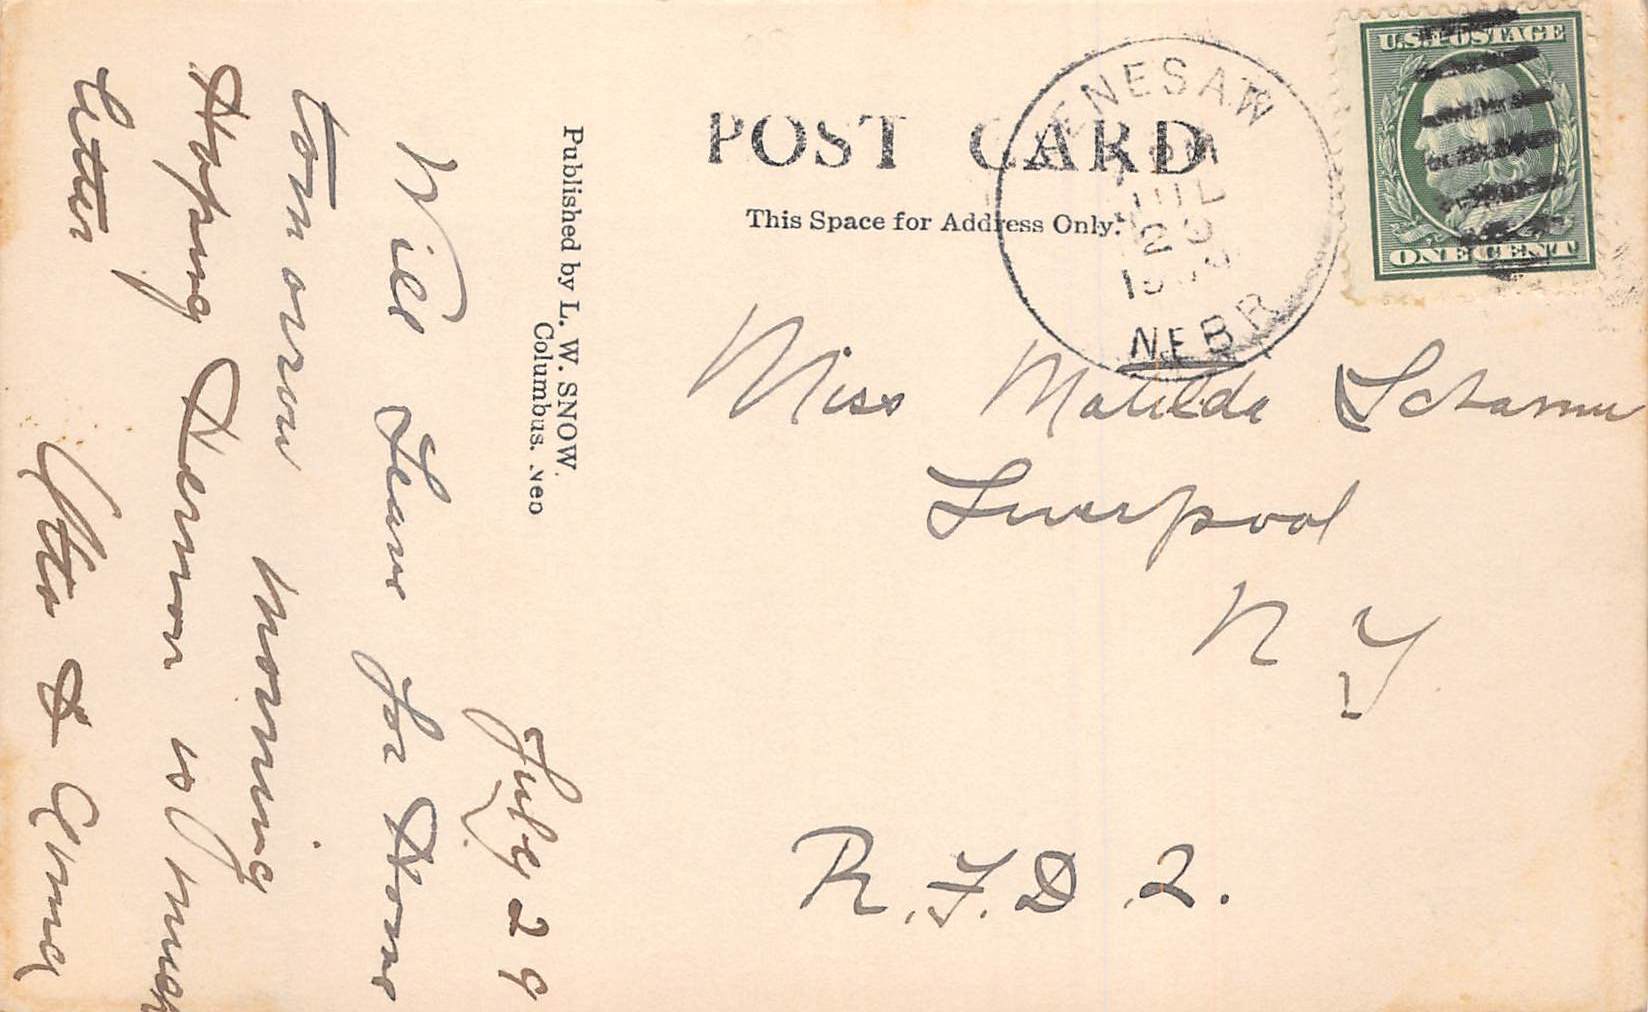 POST CARD
This Space for Address Only.
Published by L. W. SNOW.
Columbus. Neb
KENESAW
JUL
29
1909
NEBR
U.S. POSTAGE
ONE CENT
Miss Matilda
Liverpool
N Y
R.F.D. 2.
July 29
Will Leave for Home
tomorrow morning
Hoping Herman is much
better
Otto & Erma